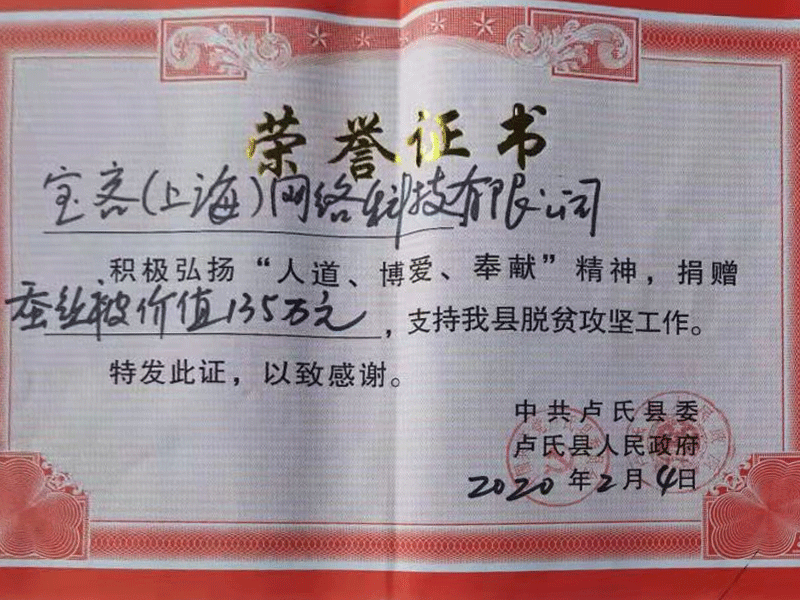 荣誉证书
宝客(上海)网络科技有限公司
积极弘扬“人道、博爱、奉献”精神，捐赠
蚕丝被价值135万元，支持我县脱贫攻坚工作。
特发此证，以致感谢。
中共卢氏县委
卢氏县人民政府
2020年2月4日